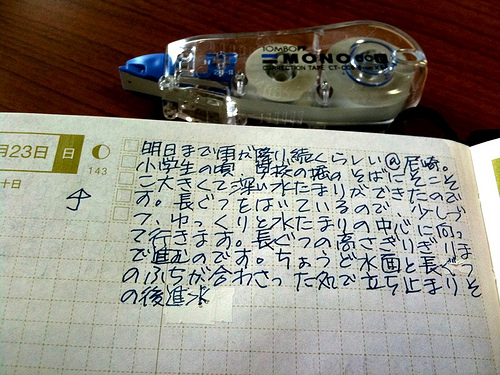 TOMBOW
MONO
CORRECTION TAPE CT-
月23日 日
143
十日
明日まで雨が降り続くらしい@尼崎。
小学生の頃、学校の堀のそばにそこそ
こ大きくて深い水たまりができたので
す。長ぐつをはいているので、少しず
つ、ゆっくりと水たまりの中心に向っ
て行きます。長ぐつの高さぎりぎりま
で進むのです。ちょうど水面と長ぐつ
のふちが合わさった気で立ち止まりそ
の後進水